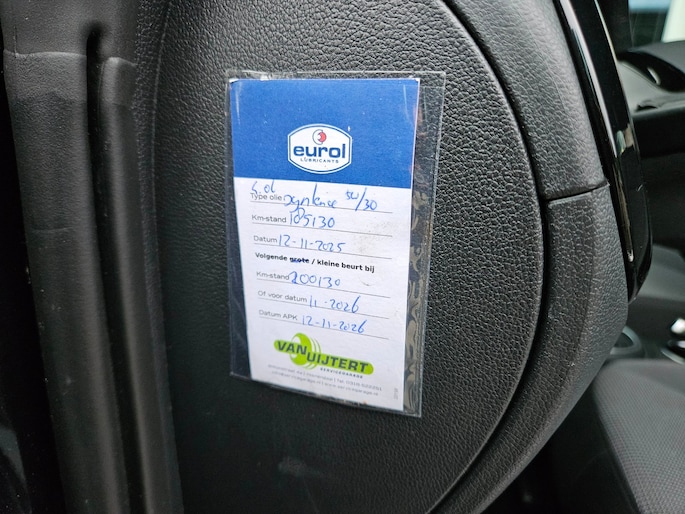 eurol
LUBRICANTS
Type olie
5w/30
Km-stand 185130
Datum 12-11-2025
Volgende grote / kleine beurt bij
Km-stand 200130
Of voor datum 11-2026
Datum APK 12-11-2026
VAN UIJTERT
SERVICEGARAGE